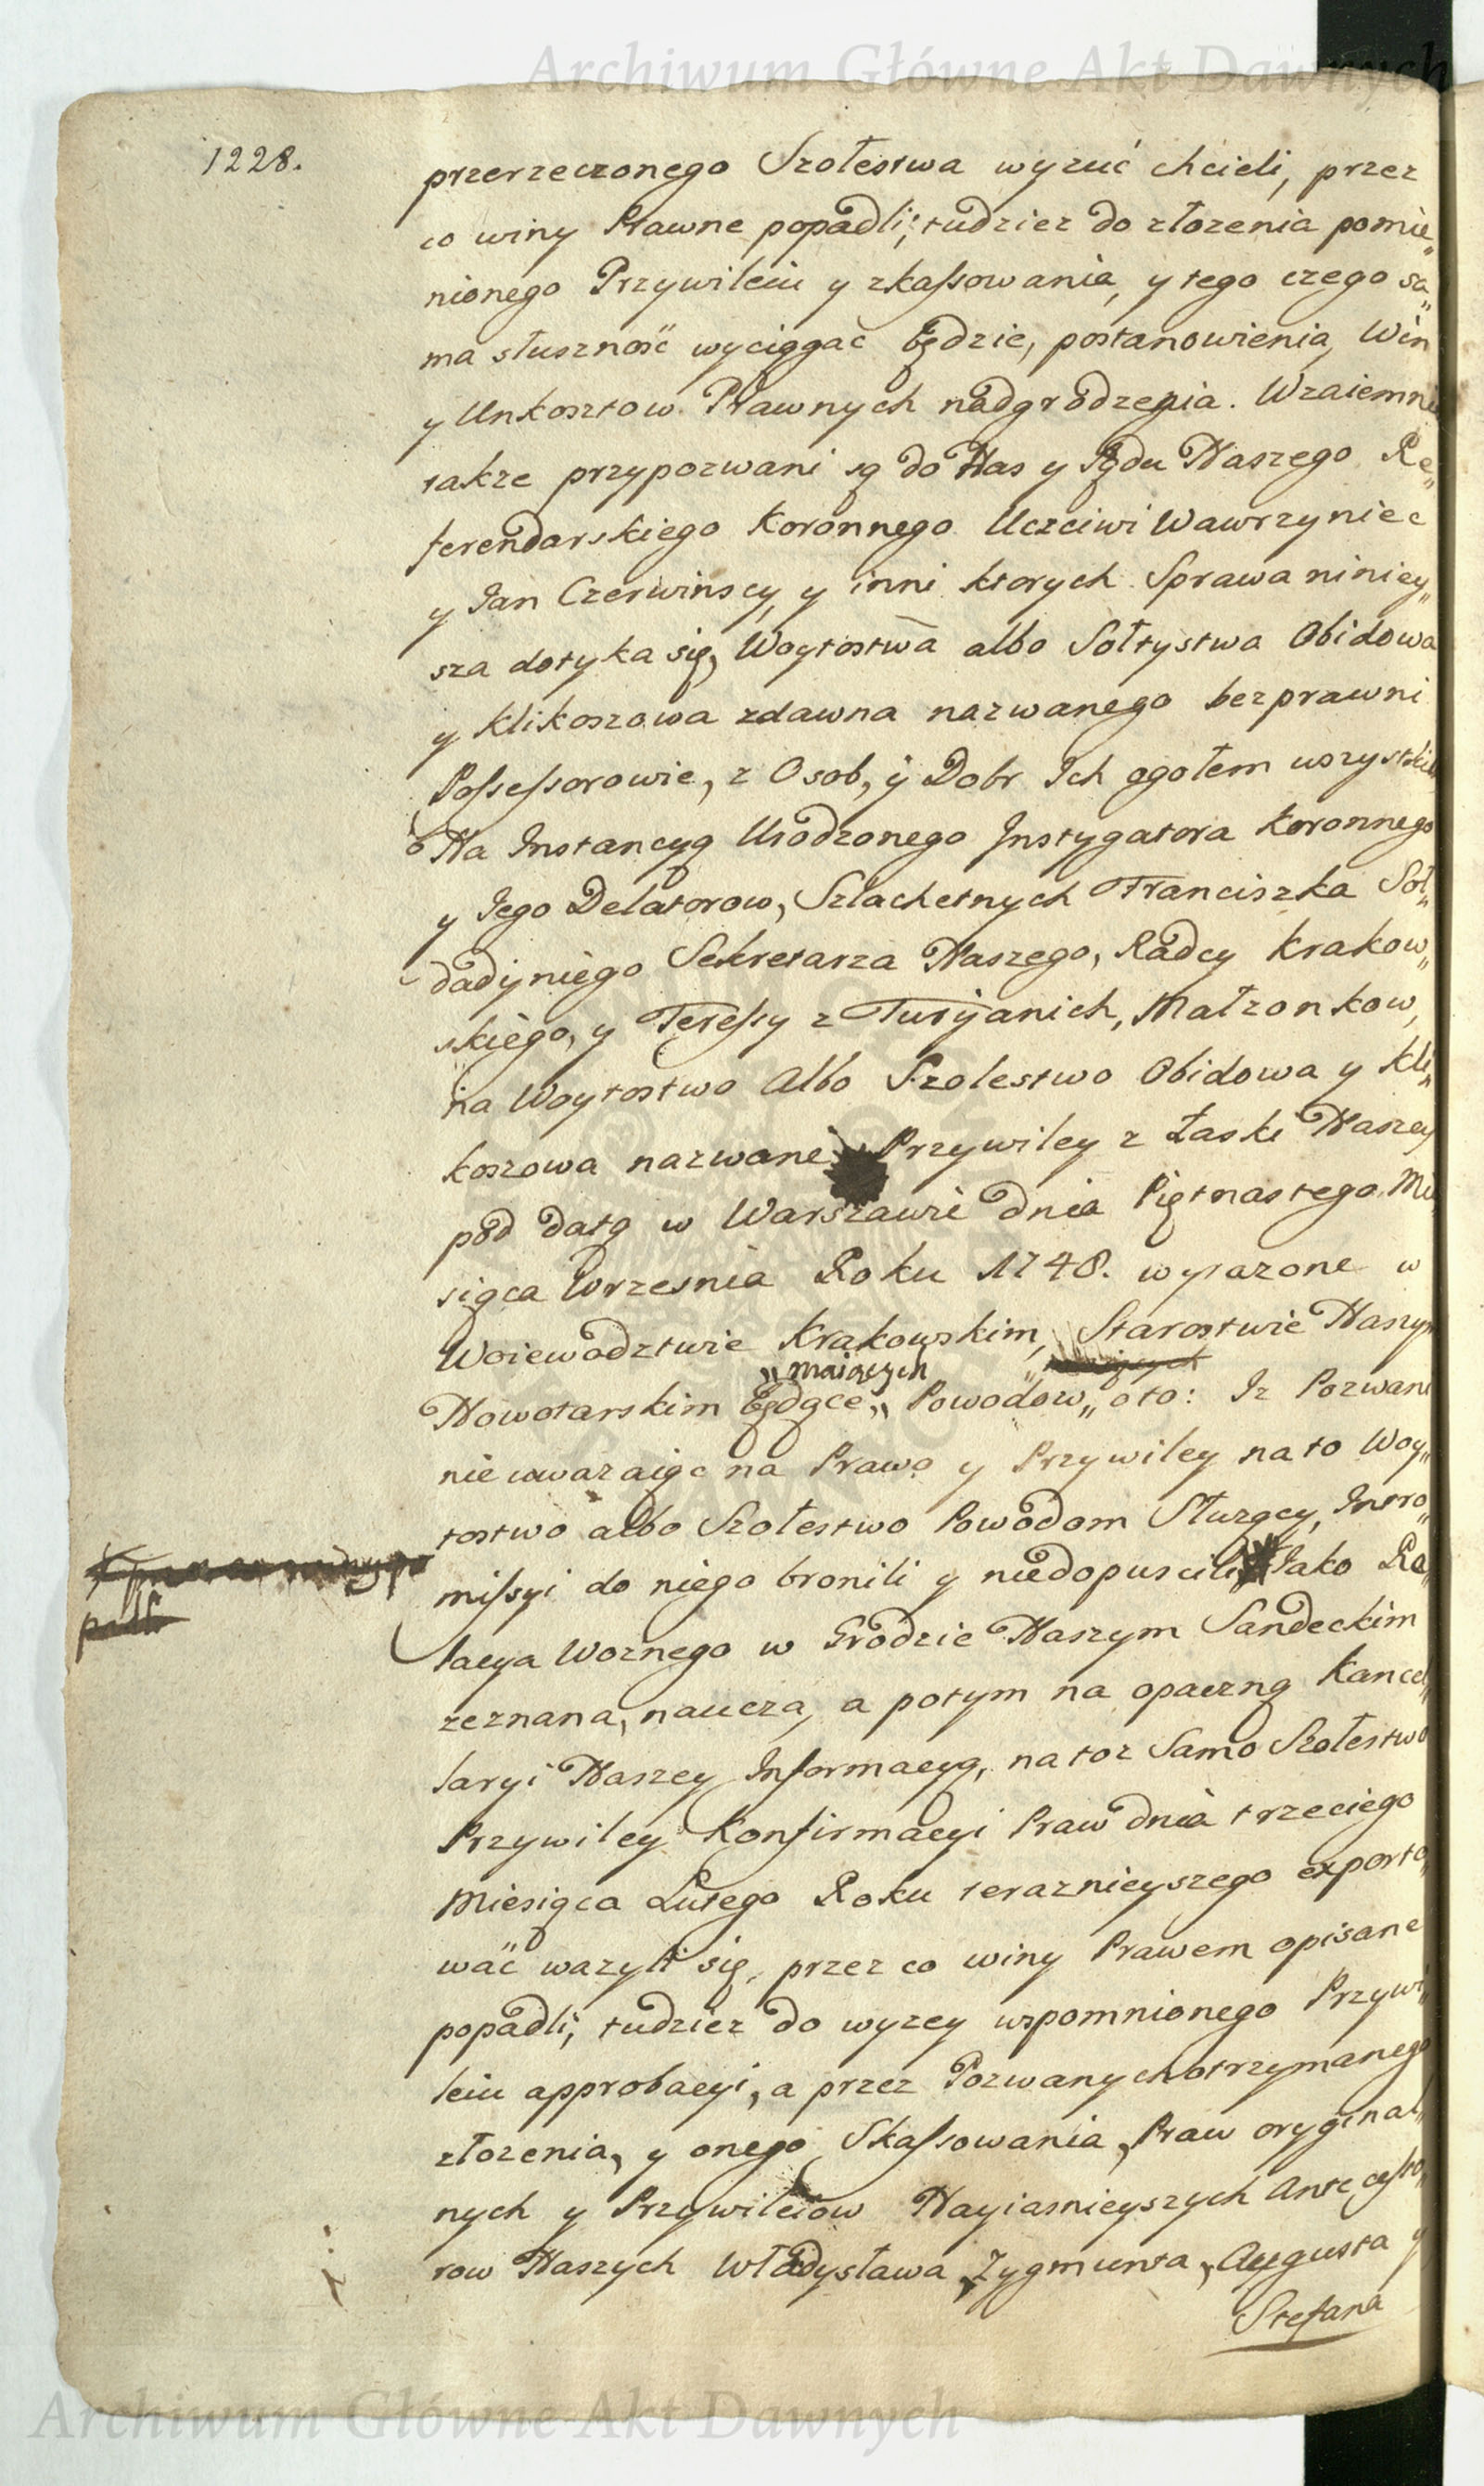 Archiwum Główne Akt Dawnych
1228.
przerzeczonego Szołestwa wyzuć chcieli, przez
co winy Prawne popadli; tudziez do złozenia pomie„
nionego Przywileiu y zkassowania, y tego czego sa„
ma słusznosć wyciągać będzie, postanowienia, Win
y Unkosztow Prawnych nadgrodzenia. Wzaiemnie
takze przypozwani są do Nas y Sądu Naszego Re„
ferendarskiego Koronnego Uczciwi Wawrzyniec
y Jan Czerwinscy, y inni ktorych Sprawa niniey„
sza dotyka się, Woytostwa albo Sołtystwa Obidowa
y Klikoszowa zdawna nazwanego bezprawni
Possessorowie, z Osob, y Dobr Ich ogołem wszystkich
Na Instancyą Urodzonego Instygatora Koronnego
y Jego Delatorow, Szlachetnych Franciszka Soł„
dadyniego Sekretarza Naszego, Radcy Krakow„
skiego, y Teressy z Turijanich, Małzonkow,
na Woytostwo Albo Szolestwo Obidowa y Kli„
koszowa nazwane Przywiley z Łaski Naszey
pod datą w Warszawie dnia Piętnastego Mie
siąca Wrzesnia Roku 1748. wyrazone w
Woiewodztwie Krakowskim, Starostwie Naszym
„maiących
Nowotarskim będące„ Powodow„ oto: Iz Pozwani
nieuwazaiąc na Prawo y Przywiley na to Woy„
tostwo albo Szołestwo Powodom Słuzący, Intro„
missyi do niego bronili y niedopuscili Jako Re„
lacya Woznego w Grodzie Naszym Sandeckim
zeznana, naucza, a potym na opaczną Kancel„
laryi Naszey Informacyą, na toz Samo Szołestwo
Przywiley Konfirmacyi Praw dnia trzeciego
Miesiąca Lutego Roku terazniejszego exporto„
wać wazyli się, przez co winy Prawem opisane
popadli; tudziez do wyzey wspomnionego Przywi„
leiu approbacyi, a przez Pozwanych otrzymanego
złozenia, y onego Skassowania, Praw oryginal„
nych y Przywileiow Nayiasnieyszych Antecesso„
row Naszych Władysława, Zygmunta, Augusta y
Stefana
Archiwum Główne Akt Dawnych